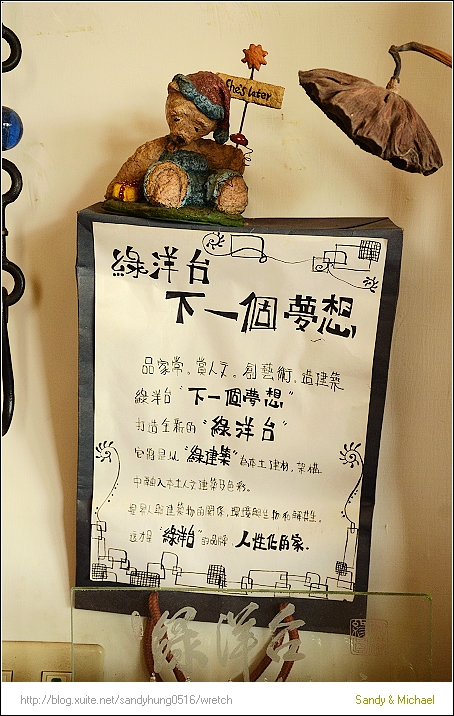 She's later
綠洋台
下一個夢想
品家常。賞人文。創藝術。造建築
綠洋台"下一個夢想"
打造全新的"綠洋台"
它將是以"綠建築"為本土建材,架構
中融入本土人文建築及色彩。
是家人與建築物的關係,環境與生物和解共生。
這才是"綠洋台"的品牌 人性化的家。
綠洋台
http://blog.xuite.net/sandyhung0516/wretch
Sandy & Michael